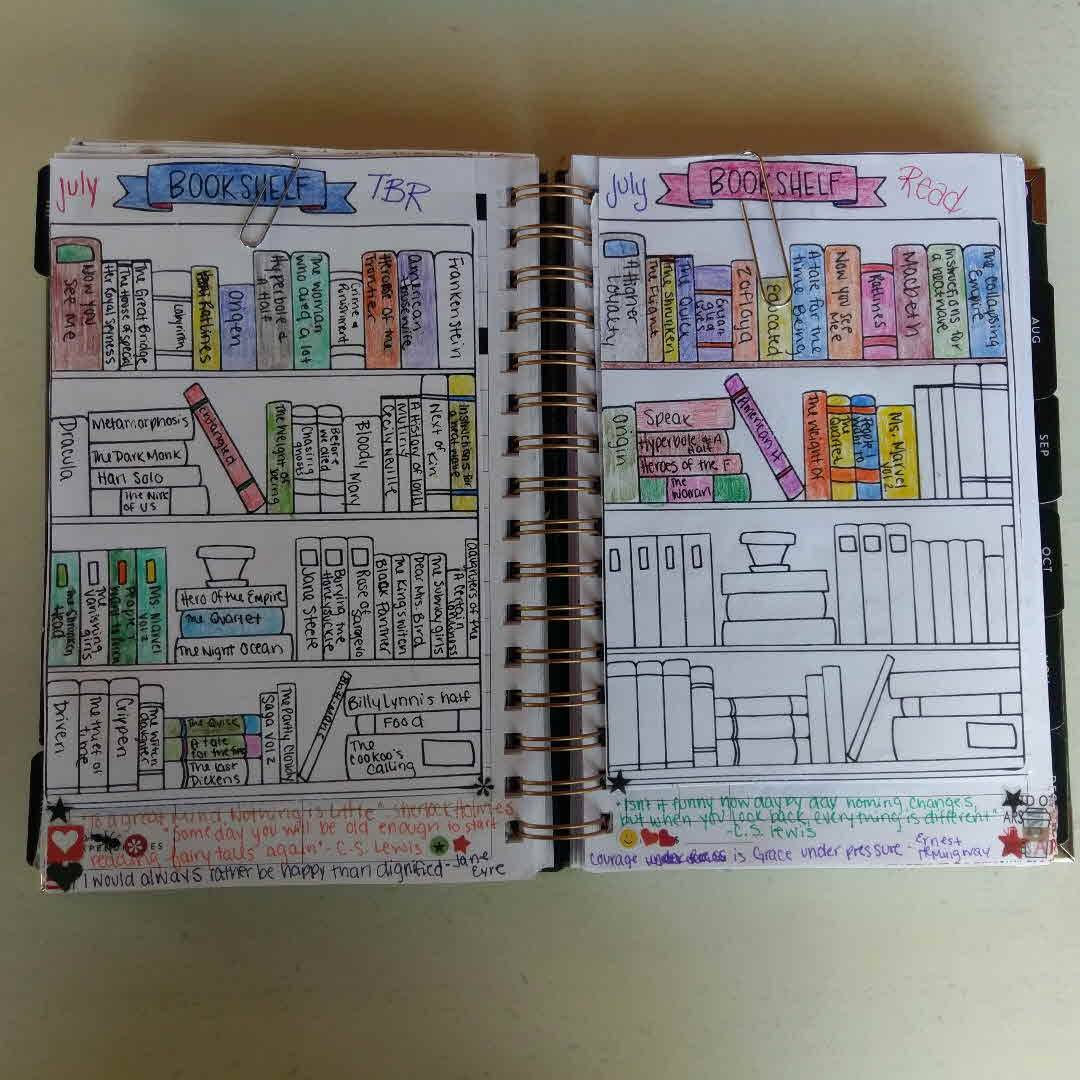 July BOOKSHELF TBR
Now you see me
Her Royal Spyness
The House of Special
The Great Bridge
Labyrinth
Ratlines
Origen
Hyperbole & A Half
The woman who died a lot
Crime & Punishment
Heroes of the Frontier
American Housewife
Frankenstein
Dracula
Metamorphosis
The Dark Monk
Han Solo
The Nine of US
Entangled
The Weight of being
Chasing ghosts
Before we called
Bloody Mary
Cecily Neville
Mutiny
A History of
Next of Kin
Instructions for a heatwave
The Shrunken Head
The Vanishing girls
People I want to
Ms. Marvel Vol. 2
Hero Of the Empire
The Quartet
The Night Ocean
Jane Steele
Burying the Honeysuckle
Rose of Sarajevo
Black Panther
The King's
Dear Mrs. Bird
The Subway girls
A Certain
Daughters of the
Driven
The thief of time
Crippen
The
daughter
The Quick
A tale for the time
The last Dickens
Saga Vol 2
The Partly Cloudy
Billy Lynn's half
Food
The cookoo's calling
"To a great mind, Nothing is little" - Sherlock Holmes
"Some day you will be old enough to start
reading fairy tails again" - C.S. Lewis
I would always rather be happy than dignified - Jane Eyre
July BOOKSHELF Read
A
The Fugitive
The Shrunken
The Quick
Zorlaya
Educated
A tale for the time Being
Now you See Me
Ratlines
Macbeth
Instructions for a heatwave
The Collapsing Empire
Origin
Speak
Hyperbole & A Half
Heroes of the F
The Woman
American H
The weight of
The Quartet
People I want to
Ms. Marvel Vol 2
"Isn't it funny how day by day nothing changes,
but when you look back, everything is different"
- C.S. Lewis
courage is Grace under pressure - Ernest Hemuigway
AUG
SEP
OCT